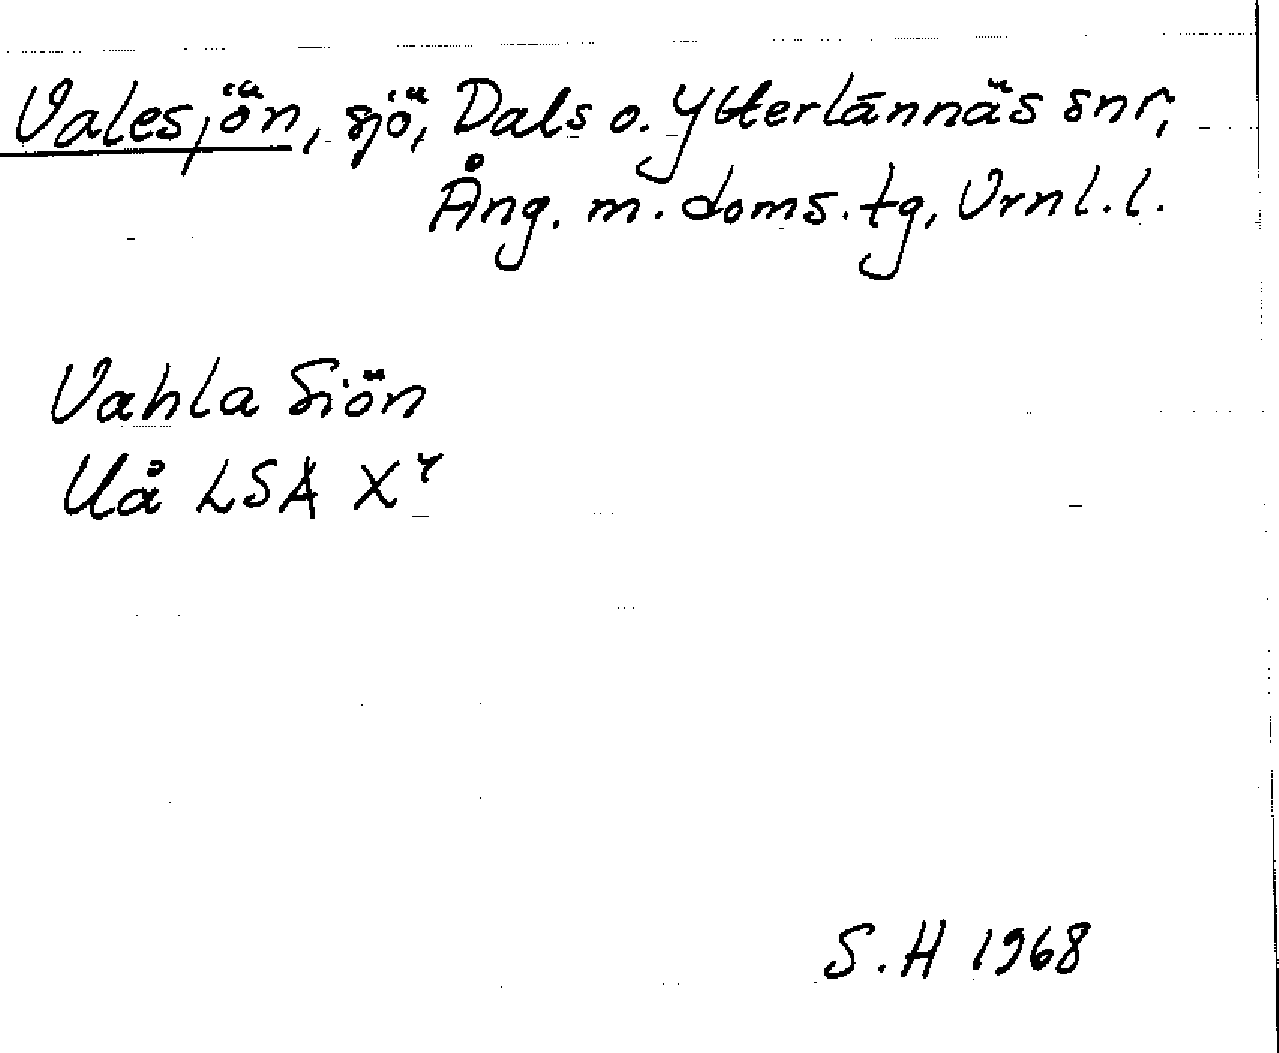 Valesjön, sjö, Dals o. Ytterlännäs snr,
Ång. m. doms.tg, Vrnl.l.
Vahla Siön
Uå LSA X⁴
S.H 1968